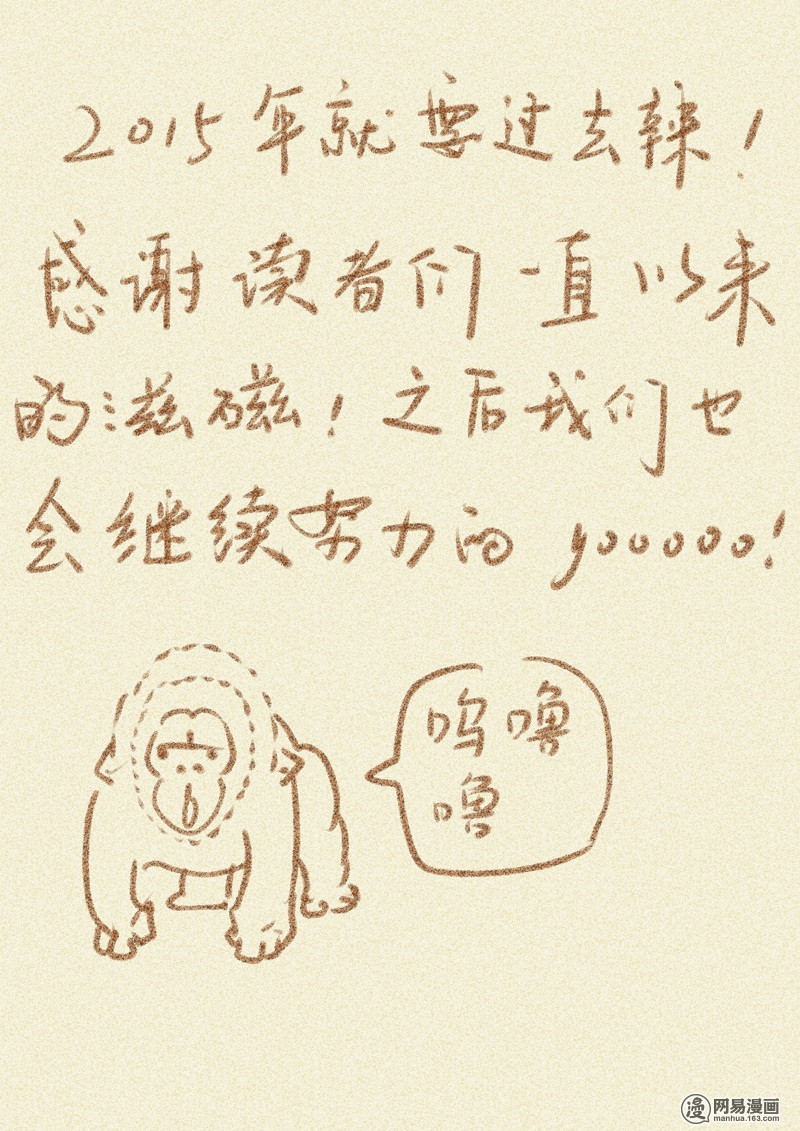 2015年就要过去辣！
感谢读者们一直以来
的滋磁！之后我们也
会继续努力的 yooooo！
呜噜
噜
漫 网易漫画
manhua.163.com